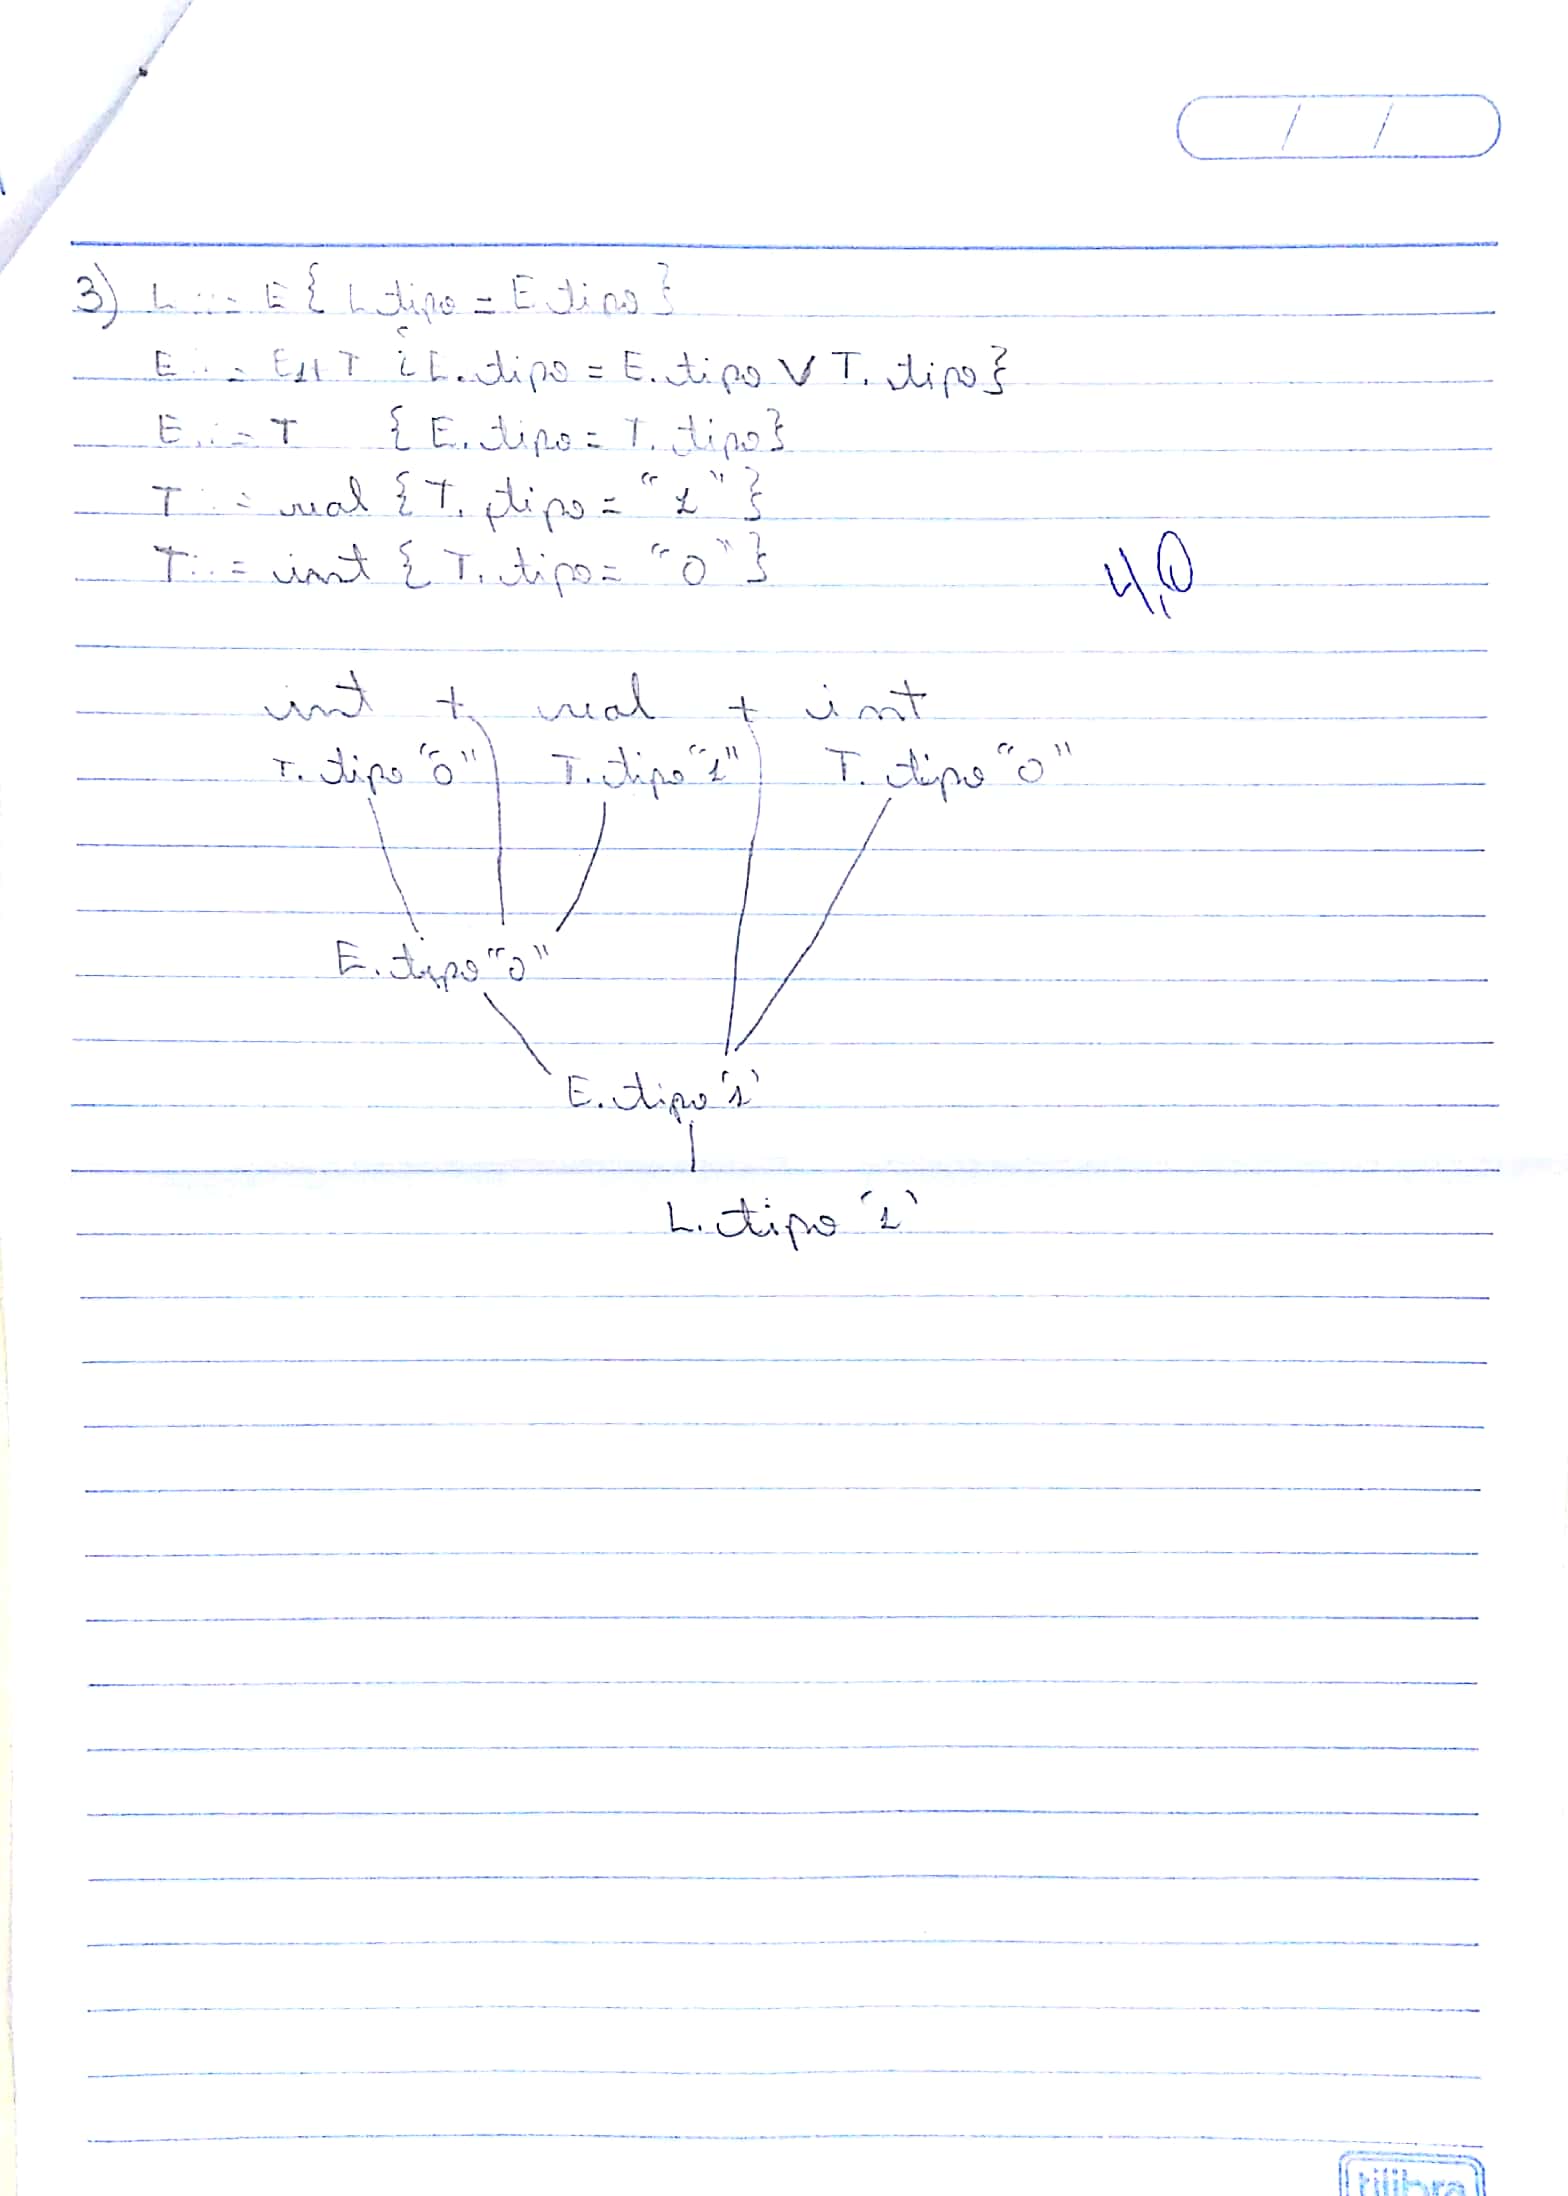 3) L ::= E { L.tipo = E.tipo }
E ::= E1+T { E.tipo = E.tipo V T.tipo}
E ::= T { E.tipo = T.tipo}
T ::= real { T.tipo = "1" }
T ::= int { T.tipo = "0" }
4,0
int + real + int
T.tipo "0" T.tipo "1" T.tipo "0"
E.tipo "0"
E.tipo '1'
L.tipo '1'
tilibra